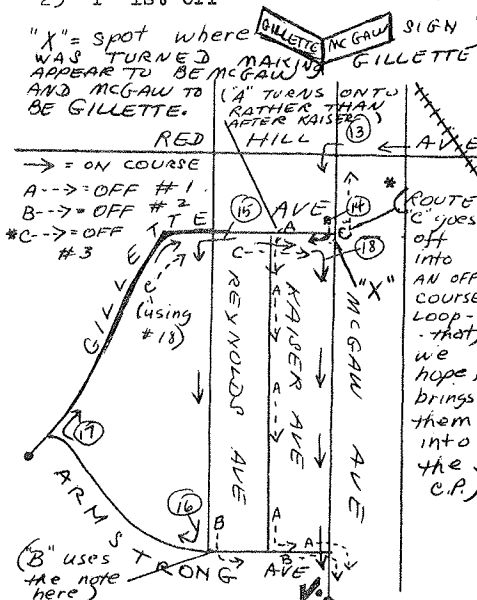 2) 1 1st off
"X" = spot where
GILLETTE McGAW SIGN
WAS TURNED MAKING GILLETTE
APPEAR TO BE McGAW
AND McGAW TO
BE GILLETTE.
("A" TURNS ONTO
RATHER THAN
AFTER KAISER)
RED HILL AVE
13
→ = ON COURSE
A--> = OFF #1
B--> = OFF #2
*C--> = OFF
#3
GILLETTE AVE
15
14
*
18
A
C
C-->
"X"
(ROUTE
"C" goes
off
into
AN OFF
COURSE
LOOP-
-that,
we
hope,
brings
them
into
the
C.P.)
C
(using
#18)
REYNOLDS AVE
KAISER AVE
McGAW AVE
A
A
A
17
16
B
A
A
B
ARMSTRONG AVE
("B" uses
the note
here)